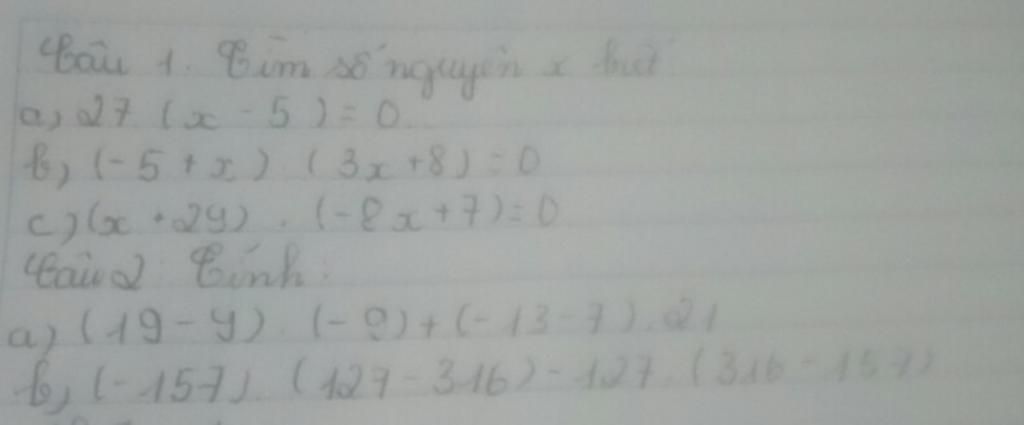 Câu 1. Tìm số nguyên x biết
a, 27 (x - 5) = 0
b, (-5 + x) . (3x + 8) = 0
c, (x + 29) . (-2x + 7) = 0
Câu 2 Tính :
a, (19 - 9) . (-9) + (-13 - 7) . 21
b, (-157) . (127 - 316) - 127 . (316 - 157)